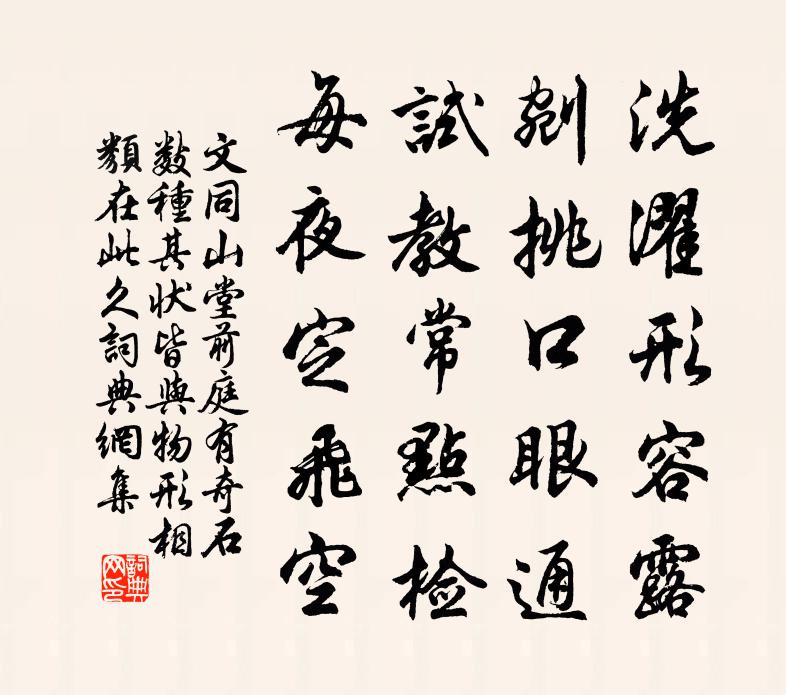 洗濯形容露
剜挑口眼通
試教常點檢
每夜定飛空
文同山堂前庭有奇石
數種其狀皆與物形相
類在此久詞典網集
詞典
网印